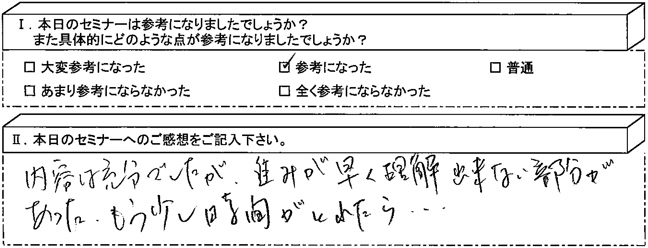 Ⅰ.本日のセミナーは参考になりましたでしょうか?
また具体的にどのような点が参考になりましたでしょうか?
□ 大変参考になった ☑ 参考になった □ 普通
□ あまり参考にならなかった □ 全く参考にならなかった
Ⅱ.本日のセミナーへのご感想をご記入下さい。
内容は充分でしたが、進みが早く理解出来ない部分が
あった、もう少し時間がとれたら...